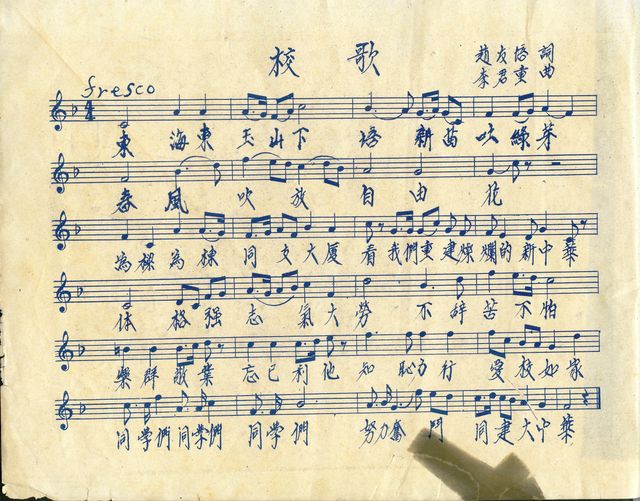 校歌
趙友培 詞
李君重 曲
fresco
東海東玉山下培新苗吐綠芽
春風吹放自由花
為樑為棟同支大厦看我們重建燦爛的新中華
体格强志氣大勞不辞苦不怕
樂群敬業忘己利他知恥力行愛校如家
同学們同学們同学們努力奮鬥同建大中華